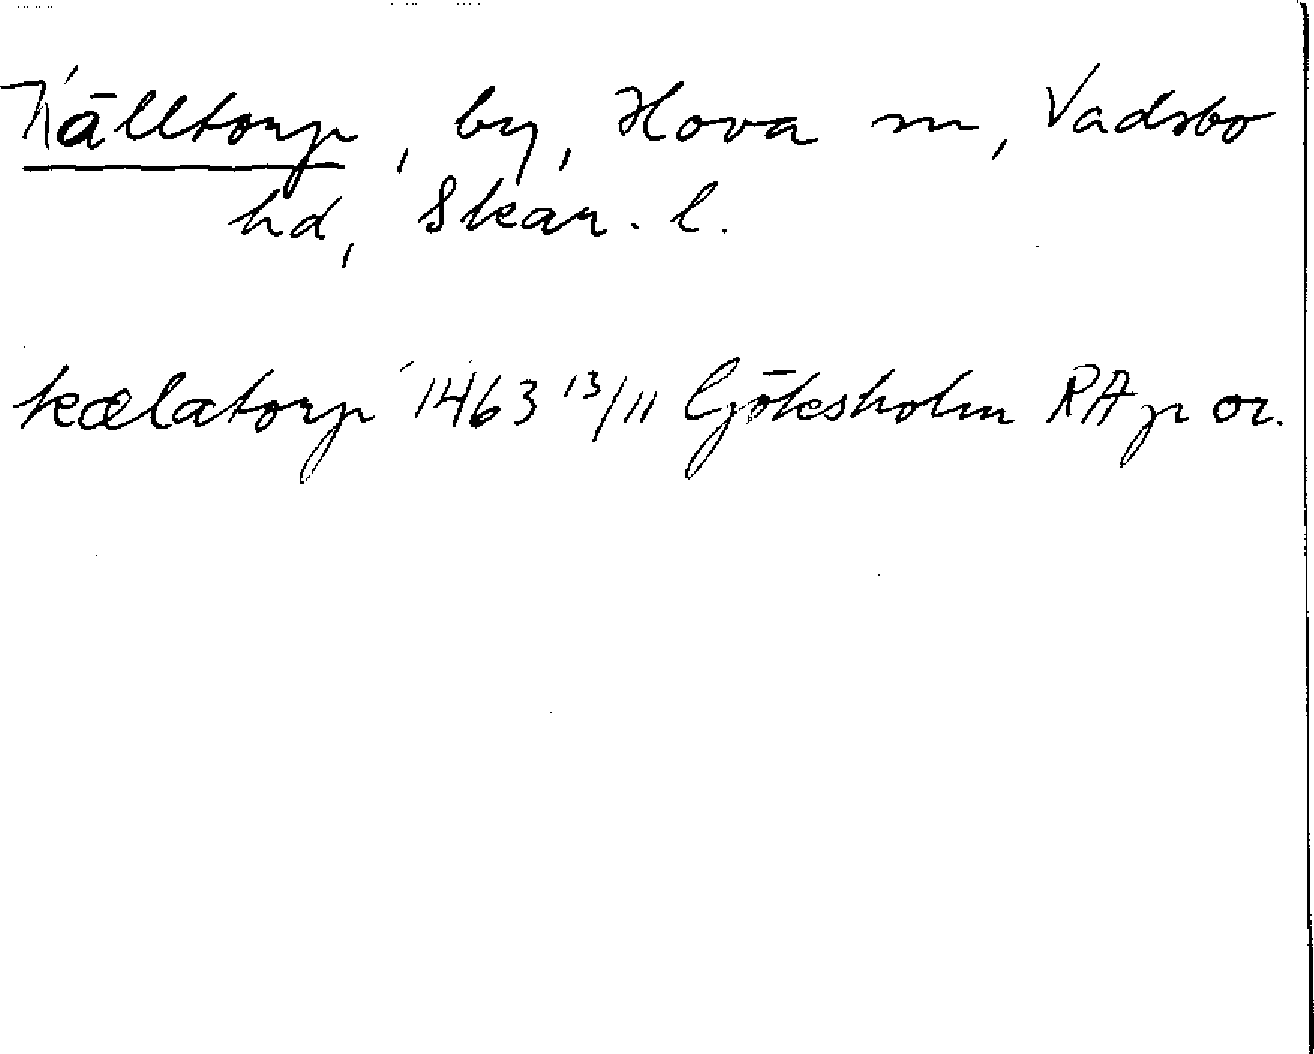 Källtorp, by, Hova sn, Vadsbo
hd, Skar. l.
kælatorp 1463 13/11 Gjöksholm RAp or.